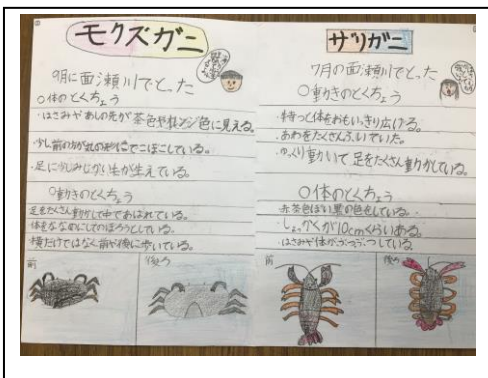 モクズガニ
9月に面瀬川でとった
○体のとくちょう
・はさみやあしの先が茶色やオレンジ色に見える。
・足に少しみじかい毛が生えている。
○動きのとくちょう
足をたくさん動かして中であばれている。
体をななめにしてのぼろうとしている。
横だけではなく前や後に歩いている。
前
後ろ
ザリガニ
7月の面瀬川でとった
○動きのとくちょう
・持つと体をおもいっきり広げる。
・あわをたくさんふいていた。
・ゆっくり動いて足をたくさん動かしている。
○体のとくちょう
・赤茶色ぽい黒の色をしている。
・しょっかくが10cmくらいある。
・はさみや体がぶつぶつしている
前
後ろ